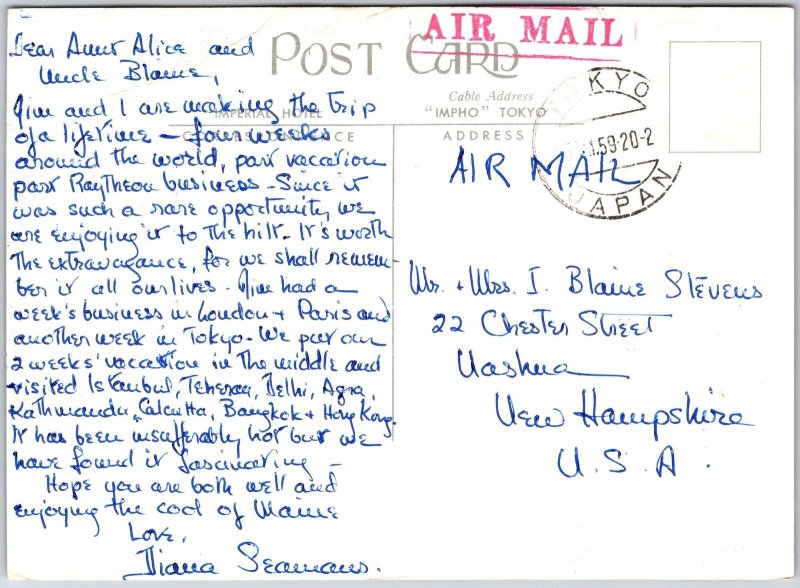 Dear Aunt Alice and
Uncle Blaine,
Jim and I are making the trip
of a lifetime – four weeks
around the world, part vacation
part Raytheon business – Since it
was such a rare opportunity, we
are enjoying it to the hilt. It's worth
the extravagance, for we shall remem-
ber it all our lives. Jim had a
week's business in London + Paris and
another week in Tokyo. We put our
2 weeks' vacation in the middle and
visited Istanbul, Teheran, Delhi, Agra,
Kathmandu, Calcutta, Bangkok + Hong Kong.
It has been insufferably hot but we
have found it fascinating –
Hope you are both well and
enjoying the cool of Maine
Love,
Diana Seamans.
POST CARD
IMPERIAL HOTEL
CORRESPONDENCE
Cable Address
"IMPHO" TOKYO
ADDRESS
AIR MAIL
TOKYO
.59-20-2
JAPAN
AIR MAIL
Mr. + Mrs. I. Blaine Stevens
22 Chester Street
Nashua
New Hampshire
U.S.A.